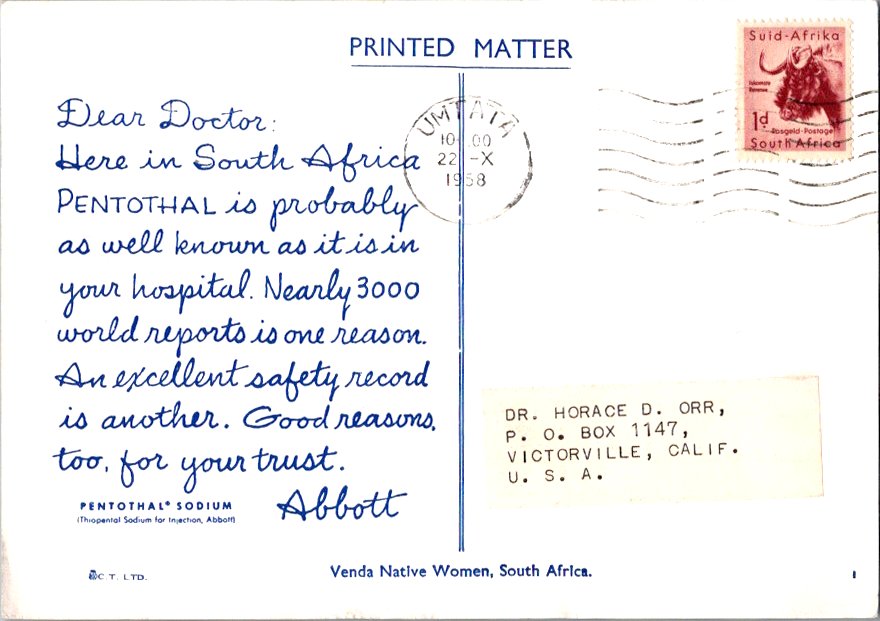 PRINTED MATTER
Suid-Afrika
1d
Posgeld-Postage
South Africa
UMTATA
22 -X
1958
Dear Doctor:
Here in South Africa
PENTOTHAL is probably
as well known as it is in
your hospital. Nearly 3000
world reports is one reason.
An excellent safety record
is another. Good reasons,
too, for your trust.
Abbott
PENTOTHAL® SODIUM
(Thiopental Sodium for Injection, Abbott)
DR. HORACE D. ORR,
P. O. BOX 1147,
VICTORVILLE, CALIF.
U. S. A.
C. T. LTD.
Venda Native Women, South Africa.
1